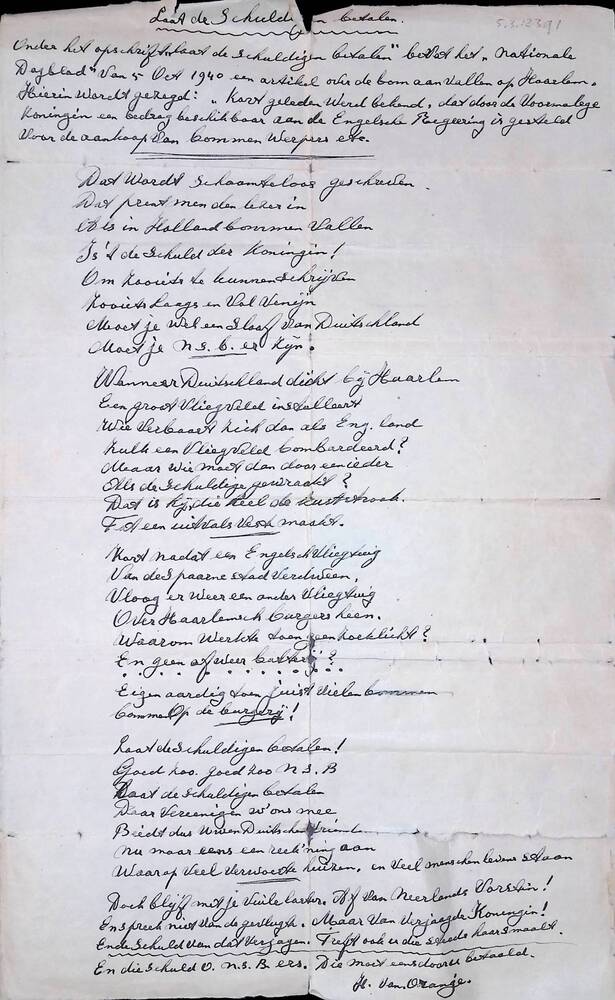 Laat de Schuldigen betalen.
5.3.12391
Onder het opschrift "laat de Schuldigen betalen" bevat het "Nationale
Dagblad" van 5 Oct 1940 een artikel over de bom aanvallen op Haarlem.
Hierin wordt gezegd: "Kort geleden werd bekend, dat door de Voormalege
Koningin een bedrag beschikbaar aan de Engelsche Regeering is gesteld
voor de aankoop van bommen werpers etc.
Dat wordt schaamteloos geschreven.
Dat prent men den lezer in
Als in Holland bommen vallen
Is 't de Schuld der Koningin!
Om zooiets te kunnen schrijven
Zooiets laags en vol venijn
Moet je wel een slaaf van Duitschland
Moet je n.s.b.er zijn.
Wanneer Duitschland dicht bij Haarlem
Een groot vliegveld installeert
Wie verbaast zich dan als Eng. land
Zulk een vliegveld bombardeerd?
Maar wie moet dan door eenieder
Als de schuldige gewraakt?
Dat is hij, die heel de kuststrook.
Tot een uitvals vest maakt.
Kort nadat een Engelsch vliegtuig
Van de Spaarne stad verdween,
Vloog er weer een ander vliegtuig
Over Haarlemsch burgers heen.
Waarom werkte toen geen zoeklicht?
En geen afweer batterij?
Eigenaardig toen juist vielen bommen
bommen op de burgerij!
Laat de schuldigen betalen!
Goed zoo. goed zoo N.S.B
Laat de schuldigen betalen
Daar vereenigen w' ons mee
Biedt dus uwen Duitsche vrienden
nu maar eens een reek'ning aan
Waarop veel verwoeste huizen, en veel menschen levens staan
Doch blijf met je vuile laster. Af van Neerlands Vorstin!
En spreek niet van gevlugte. Maar van verjaagde Koningin!
En de Schuld van dat verjagen. Treft ook u die steeds haar smaalt.
En die schuld O. n.s.B ers. Die moet eens door u betaald.
H. van Oranje.